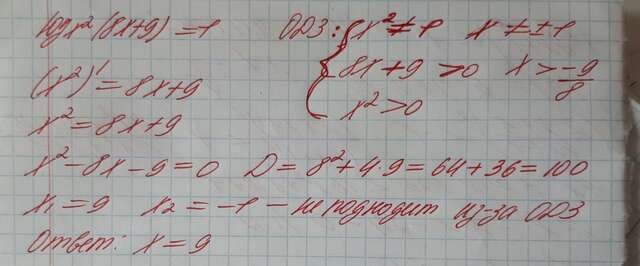 log x² (8x+9) = 1 ОДЗ: { x² ≠ 1 x ≠ ±1
8x+9 > 0 x > -9/8
x² > 0
(x²)¹ = 8x+9
x² = 8x+9
x² - 8x - 9 = 0 D = 8² + 4·9 = 64 + 36 = 100
x₁ = 9 x₂ = -1 - не подходит из-за ОДЗ
Ответ: x = 9